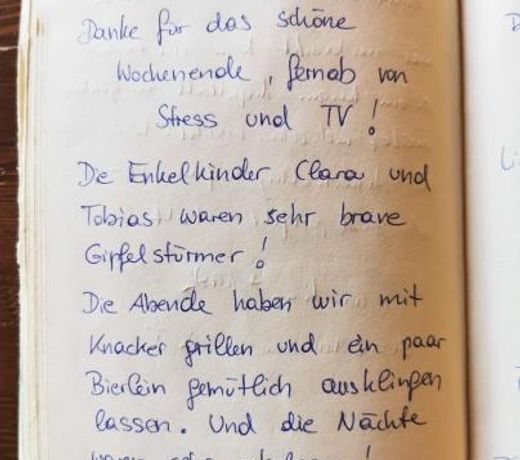 Danke für das schöne
Wochenende, fernab von
Stress und TV!
Die Enkelkinder Clara und
Tobias waren sehr brave
Gipfelstürmer!
Die Abende haben wir mit
Knacker grillen und ein paar
Bierlein gemütlich ausklingen
lassen. Und die Nächte
waren